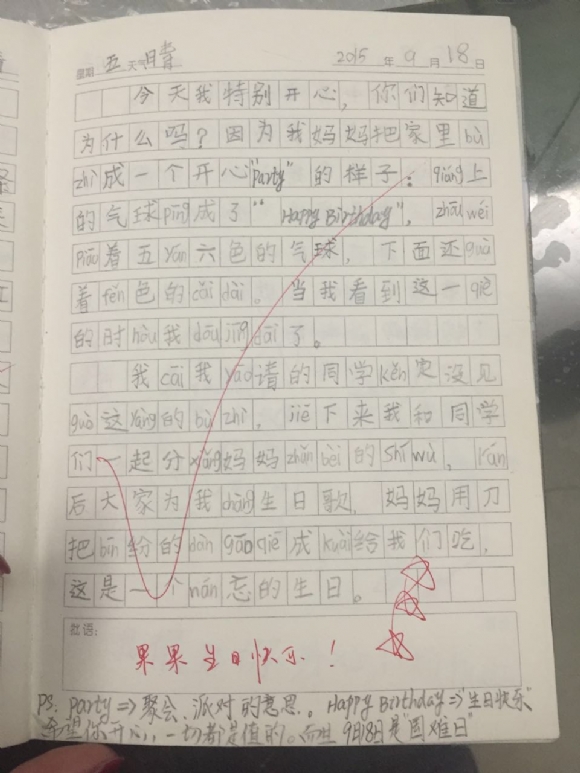 星期 五 天气 晴 2015 年 9 月 18 日
今天我特别开心,你们知道
为什么吗?因为我妈妈把家里bù
zhì成一个开心"party"的样子:qiáng上
的气球pīng成了"Happy Birthday",zhōu wéi
piāo着五yán六色的气球,下面还guà
着fěn色的cǎi dài。当我看到这一qiè
的时hòu我dōu jīng dāi了。
我cāi我yāo请的同学kěn定没见
guò这yàng的bù zhì,jiē下来我和同学
们一起分xiǎng妈妈zhǔn bèi的shí wù,rán
后大家为我chàng生日歌,妈妈用刀
把bīn纷的dàn gāo qiē成kuài给我们吃,
这是一个nán忘的生日。
批语:
果果生日快乐!
PS. party => 聚会、派对的意思。Happy Birthday => "生日快乐"
希望你开心,一切都是值的。而且9月18日是"国难日"